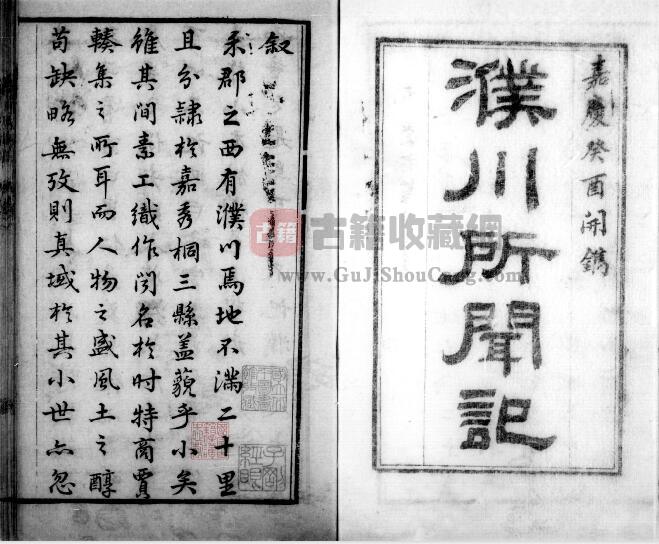 嘉慶癸酉開鐫
濮川所聞記
叙
禾郡之西有濮川焉地不滿二十里
且分隷於嘉秀桐三縣盖藐乎小矣
雖其間素工織作閒名於时特商賈
輳集之所耳而人物之盛風土之醇
苟缺略無攷則真域於其小世亦忽
古籍
古籍收藏網
www.GuJiShouCang.com